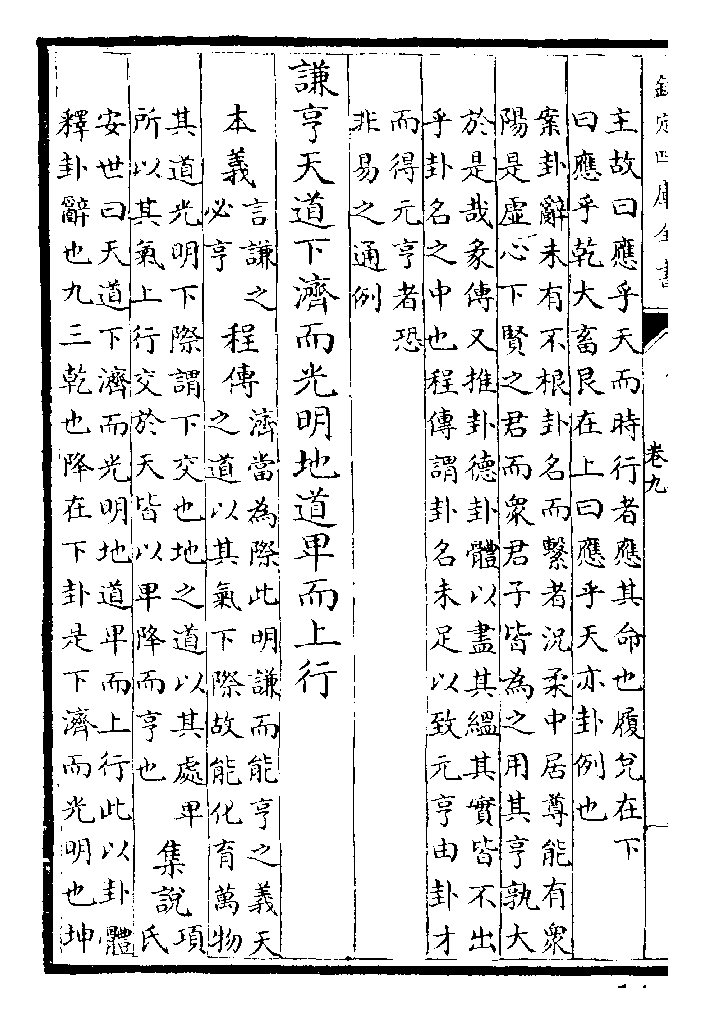 欽定四庫全書 卷九
主故曰應乎天而時行者應其命也履兊在下
曰應乎乾大畜艮在上曰應乎天亦卦例也
案卦辭未有不根卦名而繫者況柔中居尊能有衆
陽是虛心下賢之君而衆君子皆為之用其亨孰大
於是哉彖傳又推卦德卦體以盡其縕其實皆不出
乎卦名之中也程傳謂卦名未足以致元亨由卦才
而得元亨者恐
非易之通例
謙亨天道下濟而光明地道卑而上行
本義
言謙之
必亨
程傳
濟當為際此明謙而能亨之義天
之道以其氣下際故能化育萬物
其道光明下際謂下交也地之道以其處卑
所以其氣上行交於天皆以卑降而亨也
集說
項
氏
安世曰天道下濟而光明地道卑而上行此以卦體
釋卦辭也九三乾也降在下卦是下濟而光明也坤